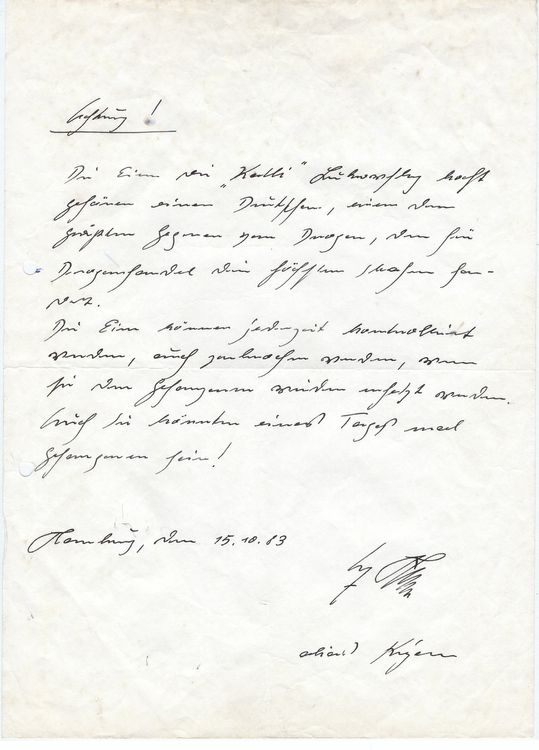 Achtung!
Die Eier die "Kalli" Lukowsky kocht
gehören einem Deutschen, einem der
größten Gegner von Drogen, der für
Drogenhandel die höchsten Strafen for-
dert.
Die Eier können jederzeit kontrolliert
werden, auch zerbrochen werden, wenn
sie dem Gefangenen wieder ersetzt werden.
Auch Sie könnten eines Tages mal
Gefangener sein!
Hamburg, den 15.10.83
alias